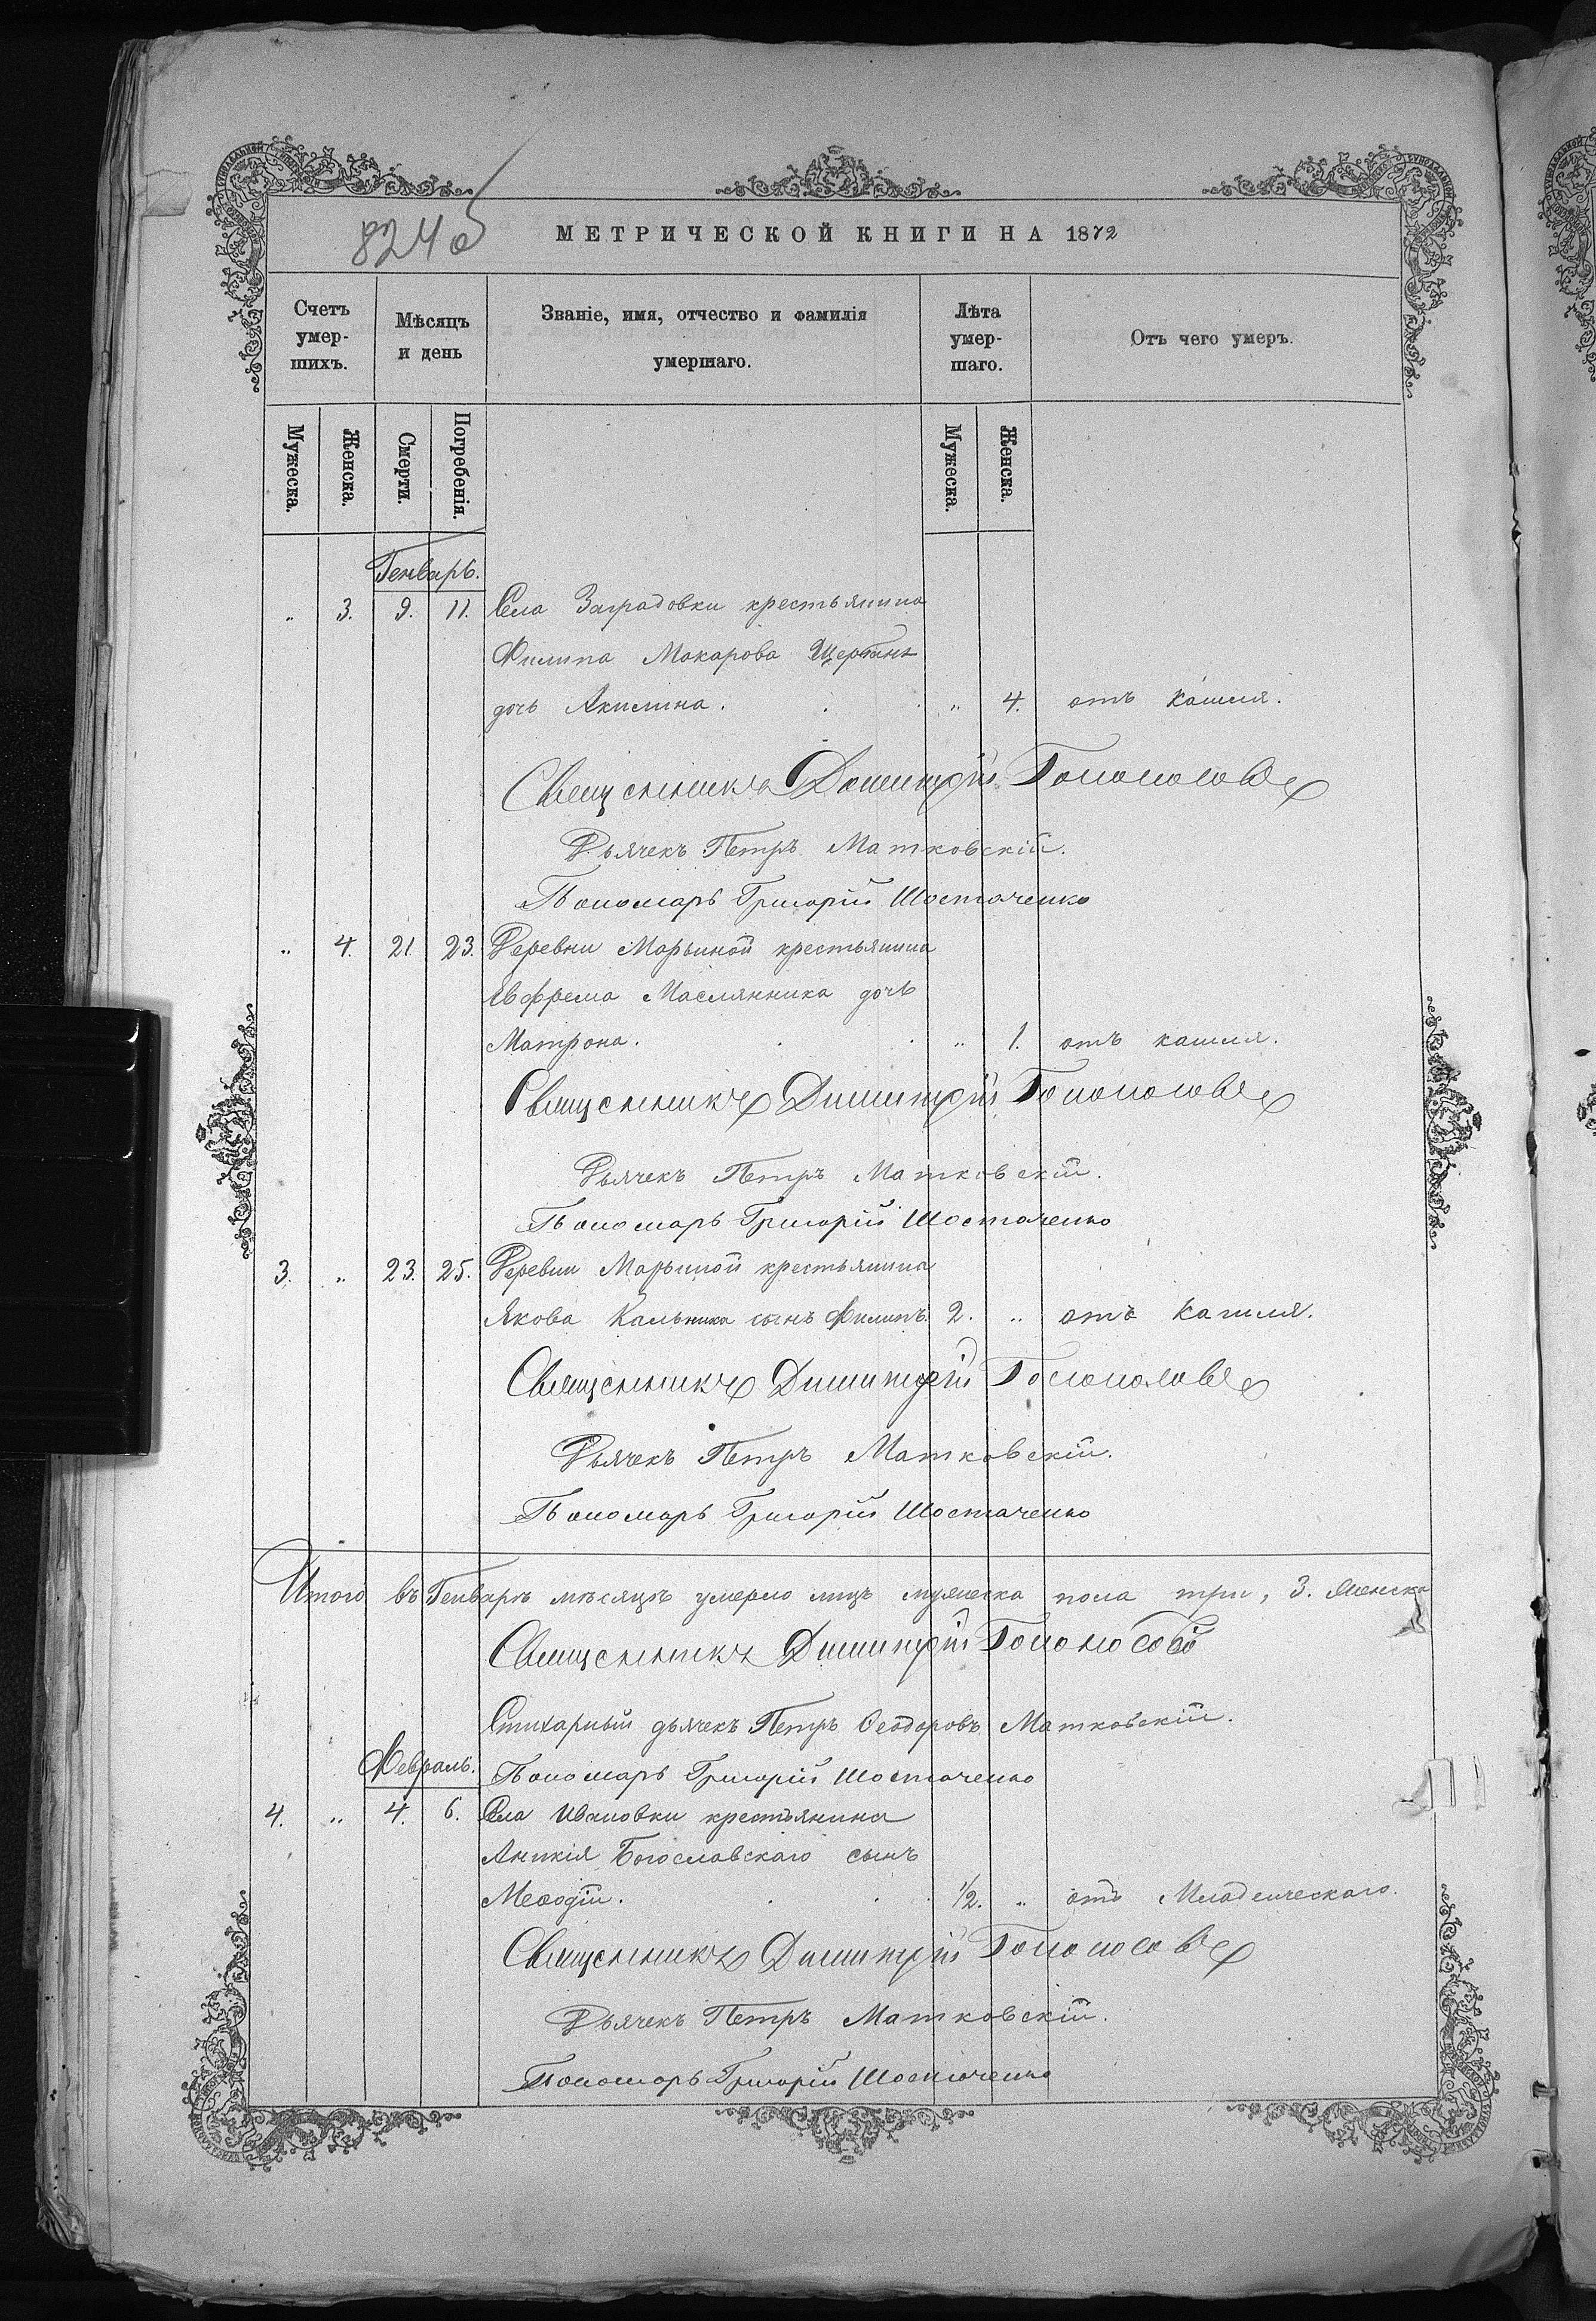 824об
МЕТРИЧЕСКОЙ КНИГИ НА 1872
Счетъ умер- шихъ.
Мѣсяцъ и день
Званіе, имя, отчество и фамилія умершаго.
Лѣта умер- шаго.
Отъ чего умеръ.
Мужеска.
Женска.
Смерти.
Погребенія.
Мужеска.
Женска.
Генварь.
„ 3. 9. 11. Села Заградовки крестьянина
Филипа Макарова Щербань
дочь Акилина. „ 4. отъ кашля.
Священникъ Димитрій
Дьячекъ Петръ Матковскій.
Пономарь Григорій Шостаченко
„ 4. 21 23. Деревни Марьиной крестьянина
Евфрема Маслянника дочь
Матрона. „ 1. отъ кашля.
Священникъ Димитрій
Дьячекъ Петръ Матковскій.
Пономарь Григорій Шостаченко
3. „ 23. 25. Деревни Марьиной крестьянина
Якова Кальника сынъ Филипъ. 2. „ отъ кашля.
Священникъ Димитрій
Дьячекъ Петръ Матковскій.
Пономарь Григорій Шостаченко
Итого въ Генварѣ мѣсяцѣ умерло лицъ мужеска пола три, 3. женска
Священникъ Димитрій
Стихарный дьячекъ Петръ Ѳеодоровъ Матковскій.
Февраль. Пономарь Григорій Шостаченко
4. „ 4. 6. Села Ивановки крестьянина
Аникія Богославскаго сынъ
Меѳодій. 1/2. „ отъ Младенческаго.
Священникъ Димитрій
Дьячекъ Петръ Матковскій.
Пономарь Григорій Шостаченко